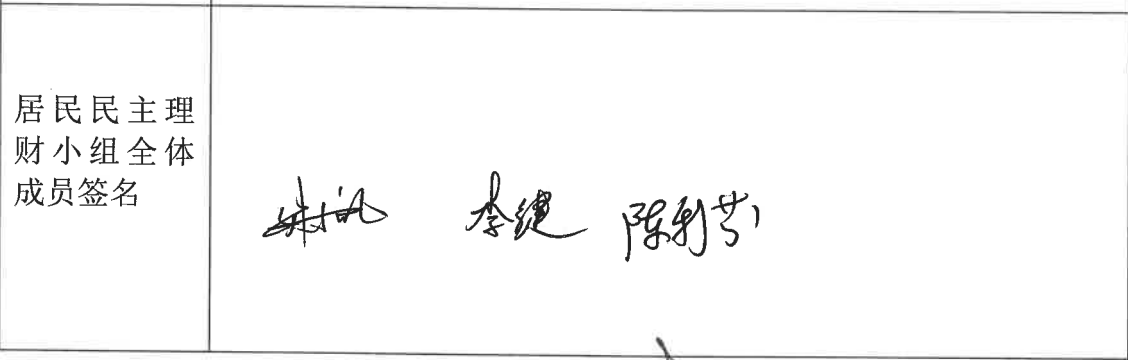 居民民主理
财小组全体
成员签名
李键 陈利芬